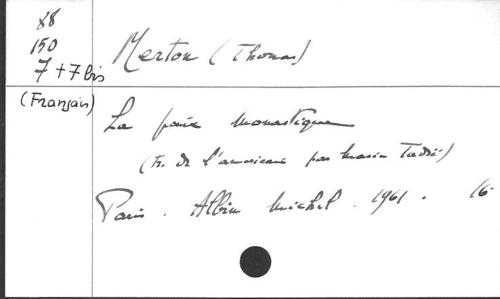 88
150
7 + 7 bis
Merton (Thomas)
(Français)
La paix monastique
(tr. de l'américain par Marie Tadié)
Paris. Albin Michel. 1961. 16-